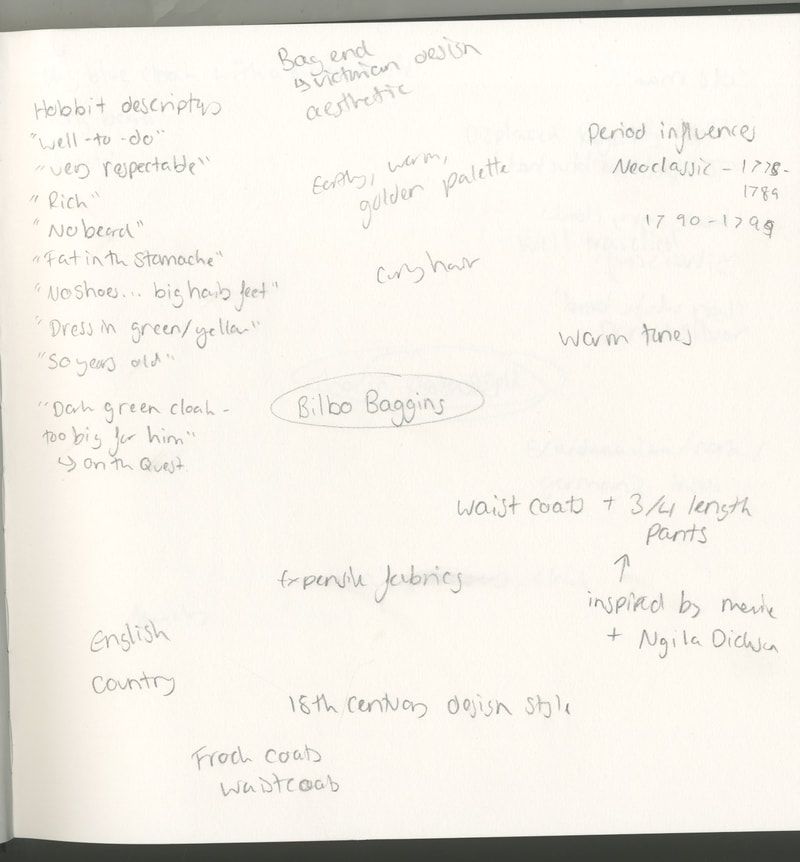 Bag end
↳ victorian design
aesthetic
Hobbit descriptors
"well-to-do"
"very respectable"
"Rich"
"No beard"
"Fat in th stomache"
"No shoes... big hairy feet"
"Dress in green/yellow"
"50 years old"
"Dark green cloak -
too big for him"
↳ on th Quest
Earthy, warm,
golden palette
curly hair
Period influences
Neoclassic - 1778-
1789
1790-1799
warm tones
Bilbo Baggins
waist coats + 3/4 length
pants
↑
inspired by movie
+ Ngila Dickson
Expensive fabrics
English
Country
18th century design style
Frock coats
waistcoats